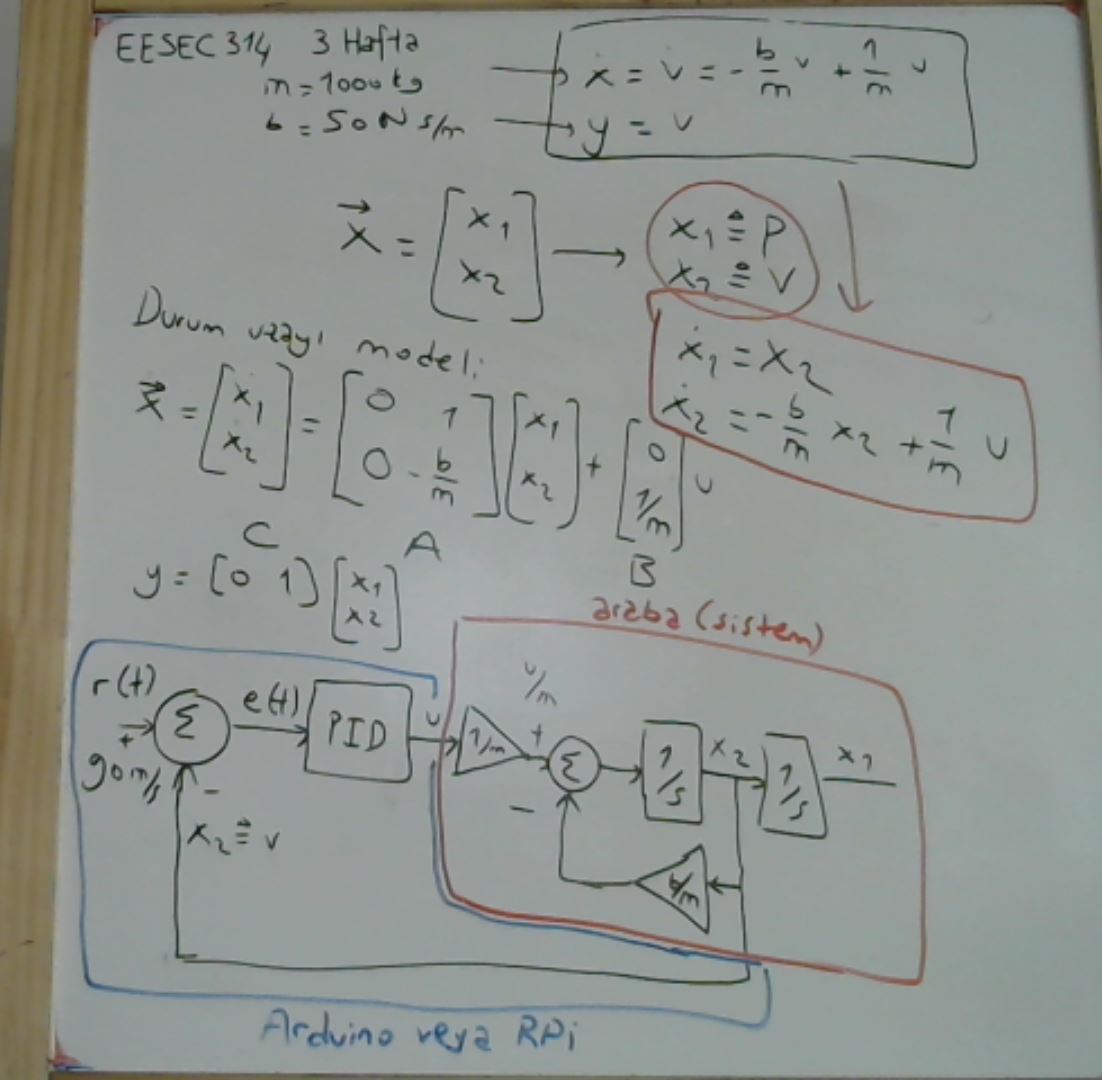 EESEC 314 3 Hafta
m = 1000 kg
b = 50 N s/m
ẋ = v̇ = - b/m v + 1/m u
y = v
x⃗ = [x1 x2] → x1 ≙ P
x2 ≙ V
ẋ1 = x2
ẋ2 = - b/m x2 + 1/m u
Durum uzayı model:
x⃗ = [ẋ1 ẋ2] = [0 1 0 -b/m] [x1 x2] + [0 1/m] u
C A B
y = [0 1] [x1 x2]
araba (sistem)
r(t) + Σ e(t) PID u 1/m u/m + Σ 1/s x2 1/s x1
90 m/s - -
x2 ≙ v b/m
Arduino veya RPi